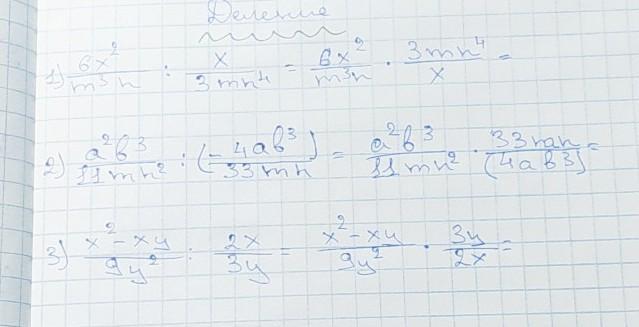 Деление
1) 6x²/m³n : x/3mn⁴ = 6x²/m³n · 3mn⁴/x =
2) a²b³/11mn² : (-4ab³/33mn) = a²b³/11mn² · 33mn/(4ab3) =
3) x²-xy/9y² : 2x/3y = x²-xy/9y² · 3y/2x =